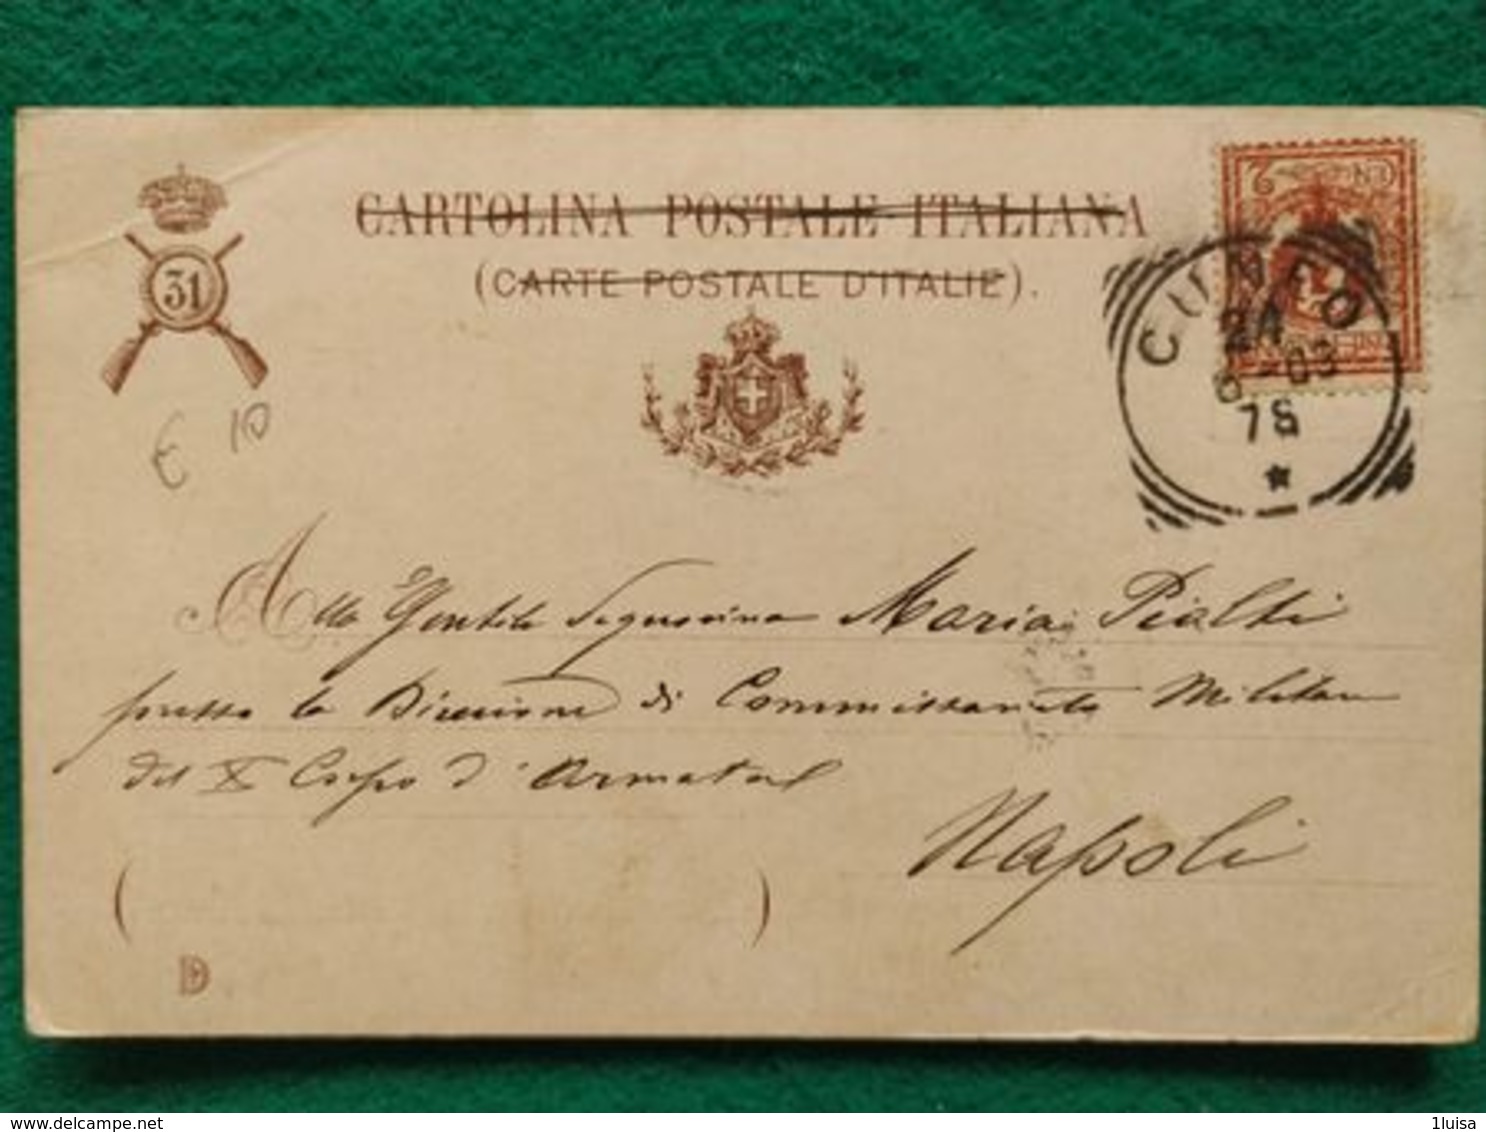 CARTOLINA POSTALE ITALIANA
(CARTE POSTALE D'ITALIE).
31
CEN 2
CUNEO
24
6-03
7S
€ 10
Alla Gentile Signorina Maria Pialti
presso la Direzione di Commissariato Militare
del X Corpo d'Armata
Napoli
( )
D
delcampe.net
1luisa